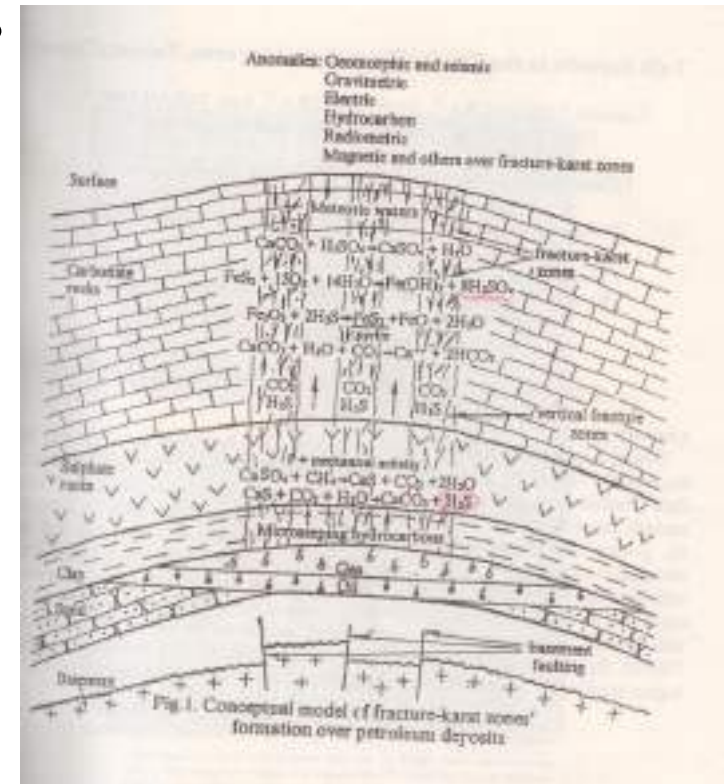 Anomalies: Geomorphic and seismic
Gravimetric
Electric
Hydrocarbon
Radiometric
Magnetic and others over fracture-karst zones
Surface
Meteoric waters
CaCO₃ + H₂SO₄→CaSO₄ + H₂O
fracture-karst
zones
Carbonate
rocks
FeS₂ + 15O₂ + 14H₂O→Fe(OH)₃ + 8H₂SO₄
Fe₂O₃ + 2H₂S→FeS₂ +FeO + 2H₂O
CaCO₃ + H₂O + CO₂→Ca⁺⁺ + 2HCO₃
CO₂ CO₂ CO₂
H₂S H₂S H₂S
vertical fracture
zones
Sulphate
rocks
+ mechanical activity
CaSO₄ + CH₄→CaS + CO₂ +2H₂O
CaS + CO₂ + H₂O→CaCO₃ + H₂S
Microseeping hydrocarbons
Clay
Gas
Oil
basement
faulting
Fig.1. Conceptual model of fracture-karst zones'
formation over petroleum deposits